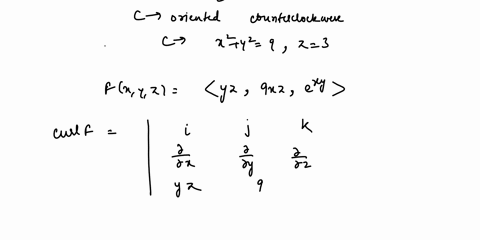 C → oriented counterclockwise
C → x²+y² = 9 , z = 3
F(x,y,z) = < yz , 9xz , e^xy >
curl F = | i j k
∂/∂x ∂/∂y ∂/∂z
yz 9